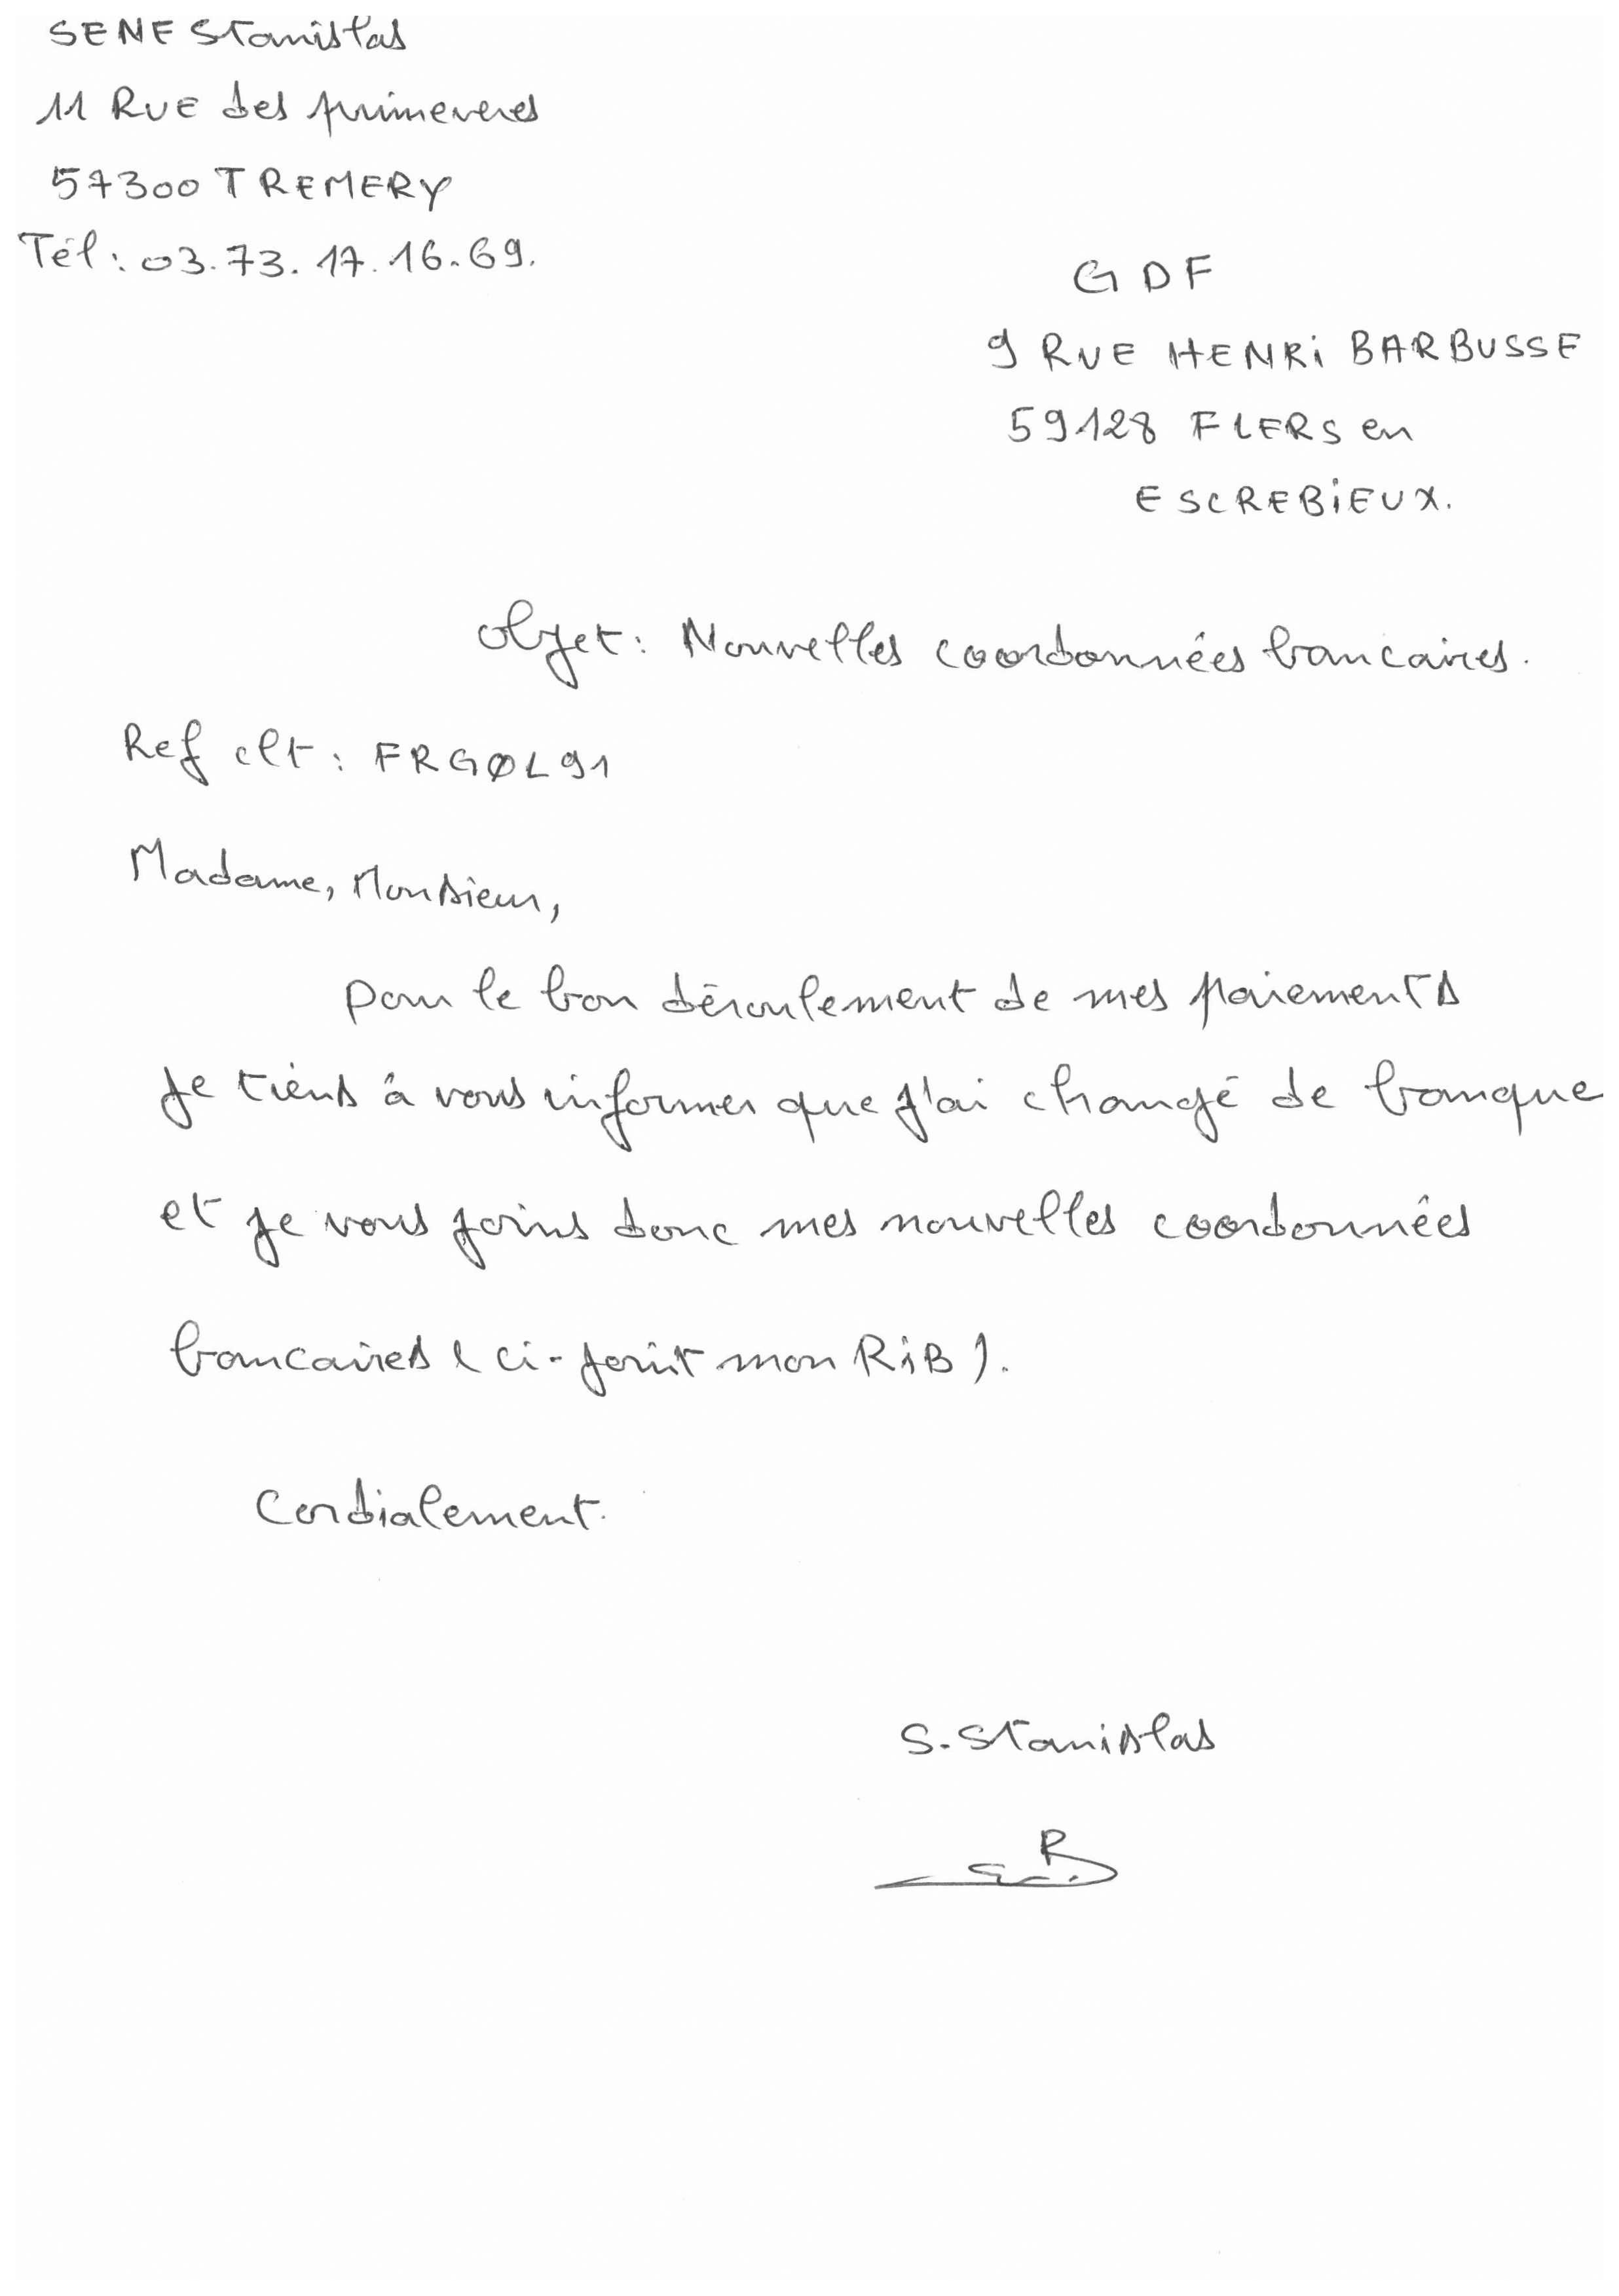 SENE Stanislas
11 RUE des primeveres
57300 TREMERY
Tél : 03.73.17.16.69.
GDF
9 RUE HENRi BARBUSSE
59128 FLERS en
ESCREBiEUX.
objet : Nouvelles coordonnées bancaires.
Ref clt : FRGØL91
Madame, Monsieur,
pour le bon déroulement de mes paiements
je tiens à vous informer que j'ai changé de banque
et je vous joins donc mes nouvelles coordonnées
bancaires (ci-joint mon RiB).
Cordialement.
S. Stanislas